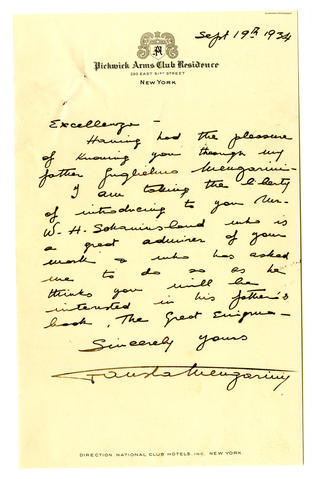 Sept 19th 1934
Pickwick Arms Club Residence
230 EAST 51ST STREET
NEW YORK
Excellenza -
Having had the pleasure
of knowing you through my
father Guglielmo Mengarini -
I am taking the liberty
of introducing to you Mr.
W. H. who is
a great admirer of your
work & who has asked
me to do so as he
thinks you will be
interested in his father's
book, The Great Enigma -
Sincerely yours
Fausta Mengarini
DIRECTION NATIONAL CLUB HOTELS, INC. NEW YORK